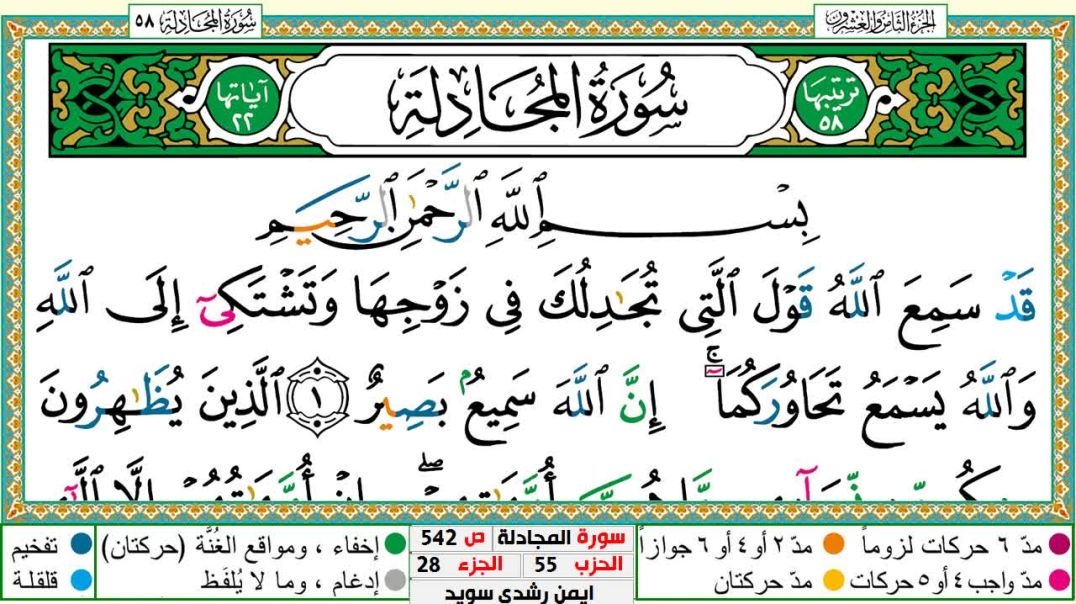 الجزء الثامن والعشرون
سُورَةُ المُجَادلة ٥٨
ترتيبها ٥٨
سُورَةُ المُجَادِلَةِ
آياتها ٢٢
بِسْمِ ٱللَّهِ ٱلرَّحْمَٰنِ ٱلرَّحِيمِ
قَدْ سَمِعَ ٱللَّهُ قَوْلَ ٱلَّتِى تُجَٰدِلُكَ فِى زَوْجِهَا وَتَشْتَكِىٓ إِلَى ٱللَّهِ
وَٱللَّهُ يَسْمَعُ تَحَاوُرَكُمَآ ۚ إِنَّ ٱللَّهَ سَمِيعٌۢ بَصِيرٌ ١ ٱلَّذِينَ يُظَٰهِرُونَ
مدّ ٦ حركات لزوماً
مدّ ٢ أو ٤ أو ٦ جوازاً
مدّ واجب ٤ أو ٥ حركات
مدّ حركتان
سورة المجادلة ص 542
الحزب 55 الجزء 28
ايمن رشدي سويد
إخفاء ، ومواقع الغُنَّة (حركتان)
تفخيم
إدغام ، وما لا يُلفَظ
قلقلة